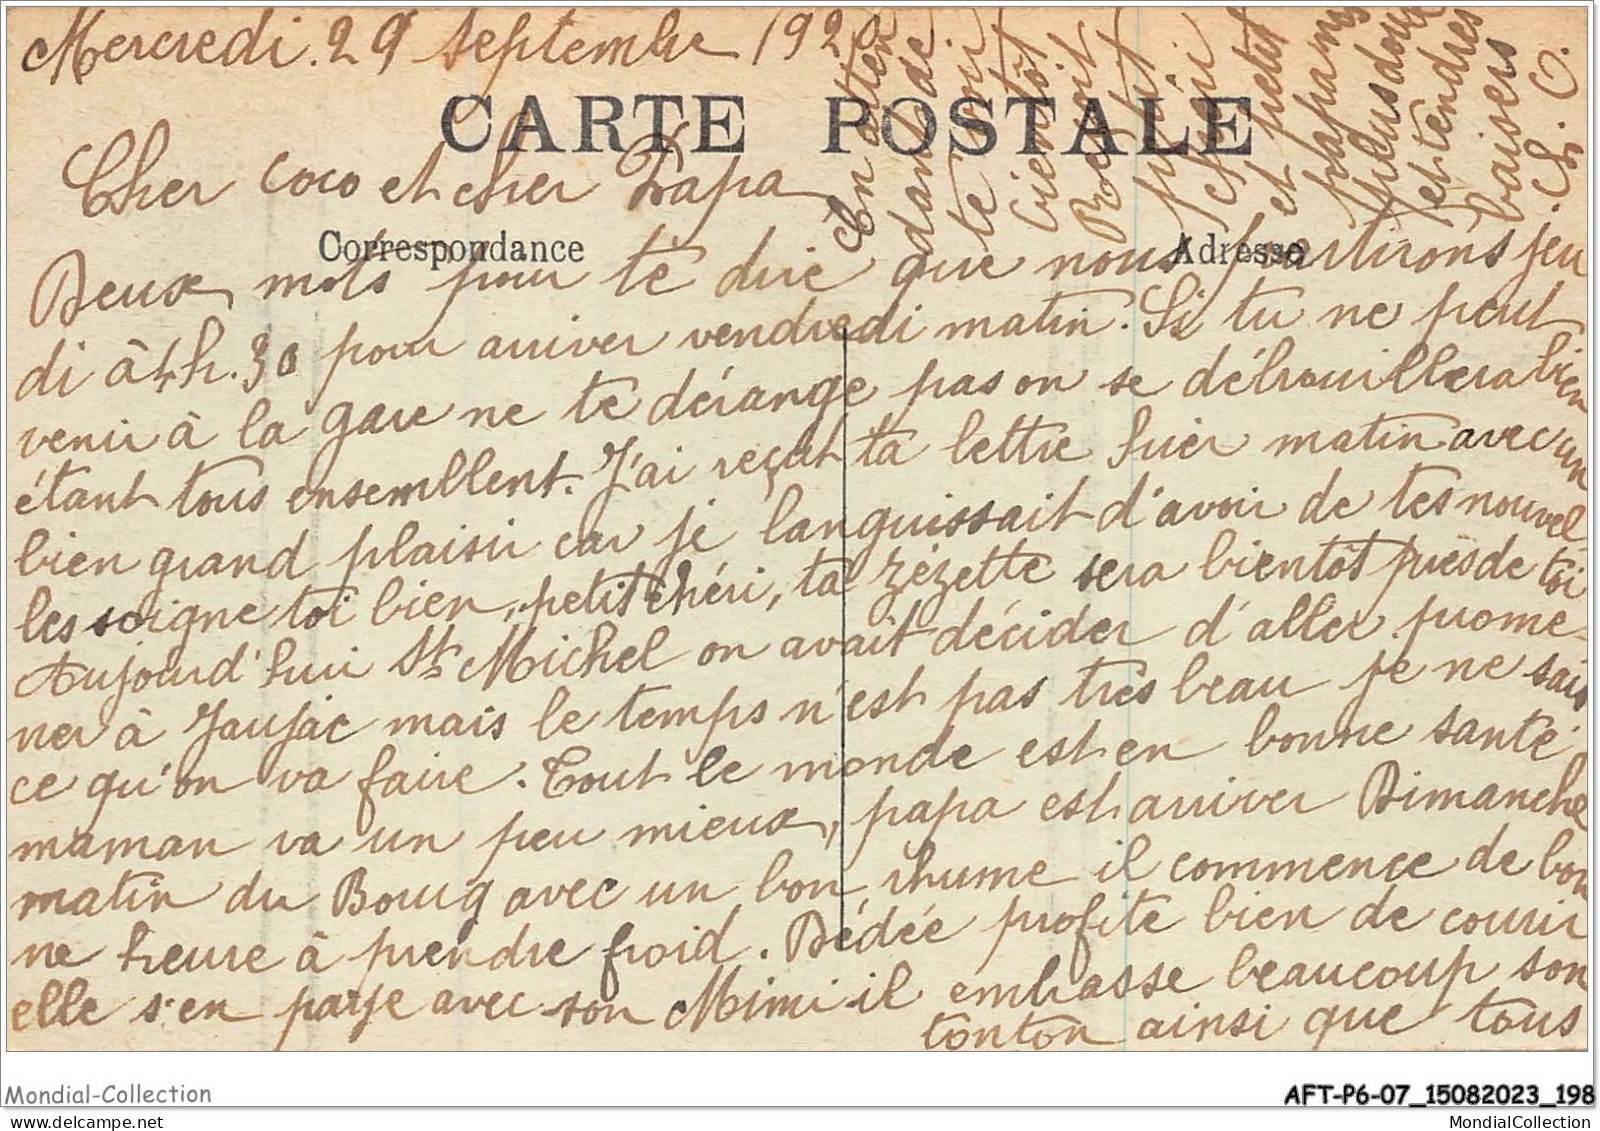 Mercredi 29 Septembre 192
CARTE POSTALE
Cher coco et cher Papa
Correspondance
Adresse
Deux mots pour te dire que nous partirons jeu
di à 4h.30 pour arriver vendredi matin. Si tu ne peut
venir à la gare ne te dérange pas on se débrouillera bien
étant tous ensemblent. J'ai reçut ta lettre hier matin avec un
bien grand plaisir car je languissait d'avoir de tes nouvel-
les soigne toi bien, petit chéri, ta Zézette sera bientôt près de toi
Aujourd'hui St Michel on avait décider d'aller prome-
ner à Jaujac mais le temps n'est pas très beau je ne sais
ce qu'on va faire. Tout le monde est en bonne santé
maman va un peu mieux, papa est arriver Dimanche
matin du Bourg avec un bon rhume il commence de bon
ne heure à prendre froid. Dédée profite bien de courir
elle s'en paye avec son Mimi il embrasse beaucoup son
tonton ainsi que tous
En atten
dant de
te voir
bientôt
Reçoit
petit
chéri
et petit
papa mes
plus doux
et tendres
baisers
Mondial-Collection
AFT-P6-07_15082023_198
www.delcampe.net
MondialCollection